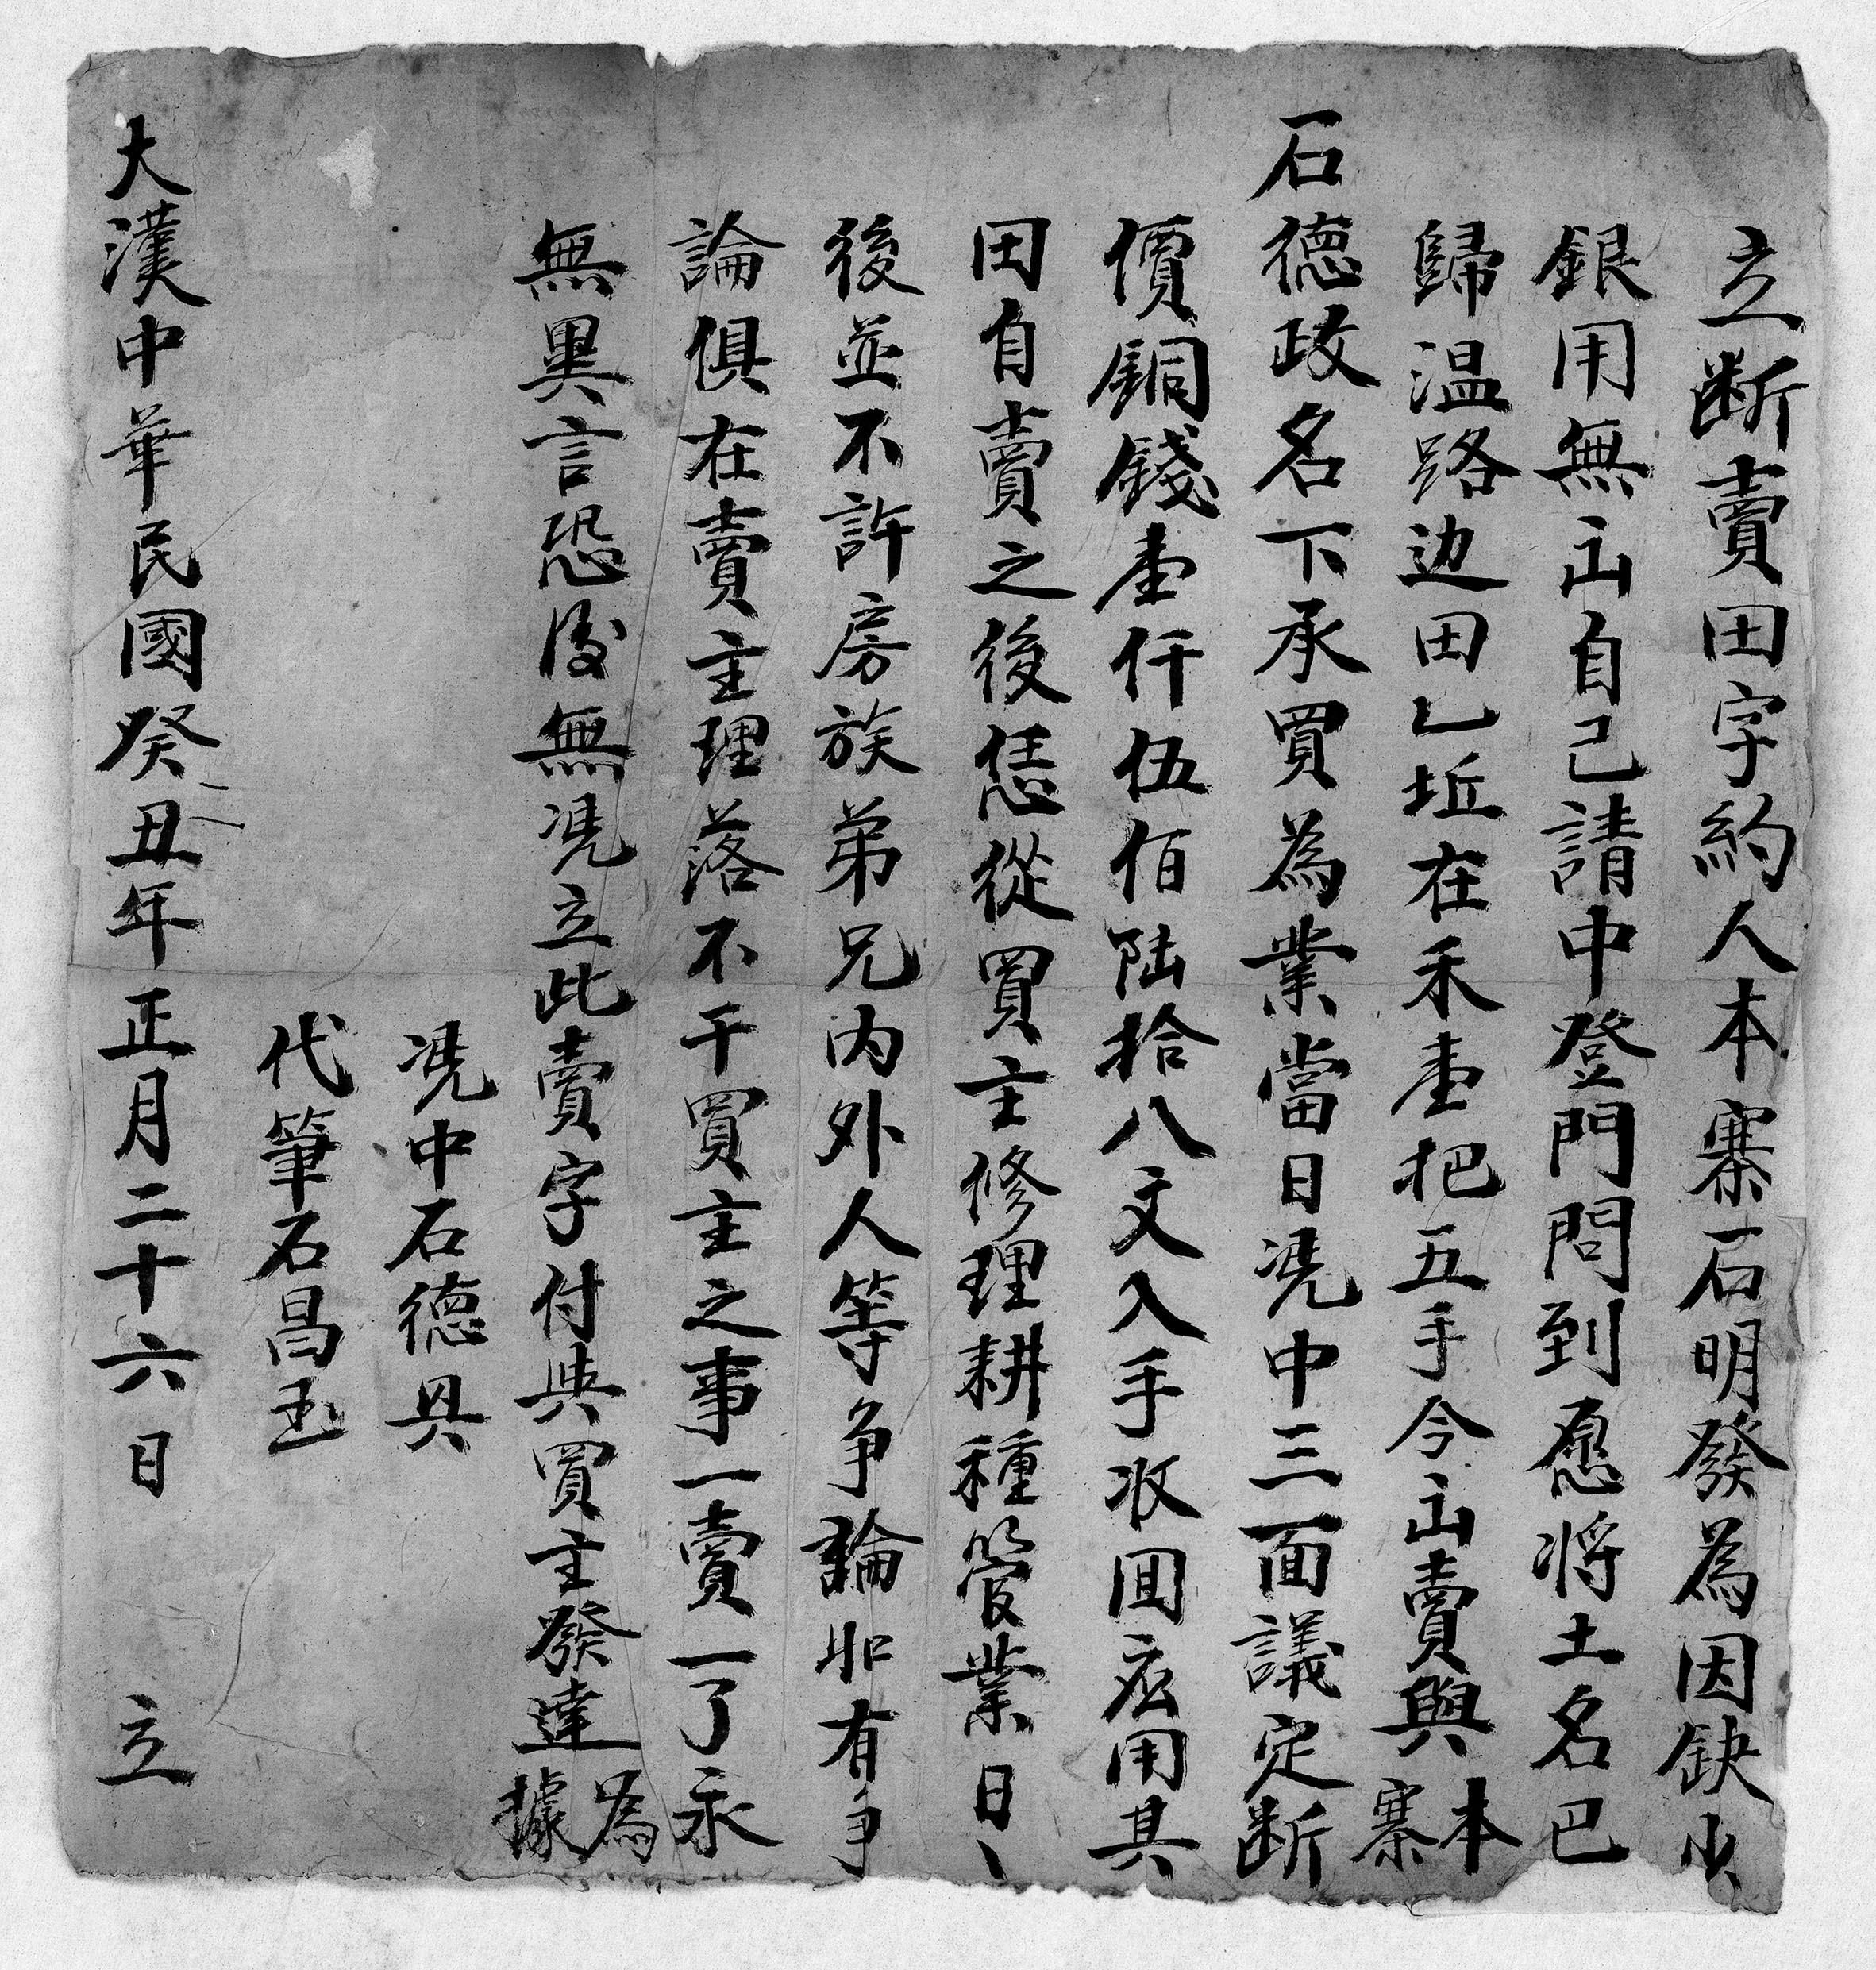 立断賣田字約人本寨石明發為因缺少
銀用無出自己請中登門問到愿将土名巴
歸温路边田乚坵在禾壹把五手今出賣與本寨
石德政名下承買為業當日凴中三面議定断
價銅錢壹仟伍佰陆拾八文入手收囬应用其
田自賣之後恁從買主修理耕種管業日丶
後並不許房族弟兄内外人等争論如有争
論俱在賣主理落不干買主之事一賣一了永
無異言恐後無凴立此賣字付與買主發達為據
凴中石德具
代筆石昌玉
大漢中華民國癸丑年正月二十六日 立